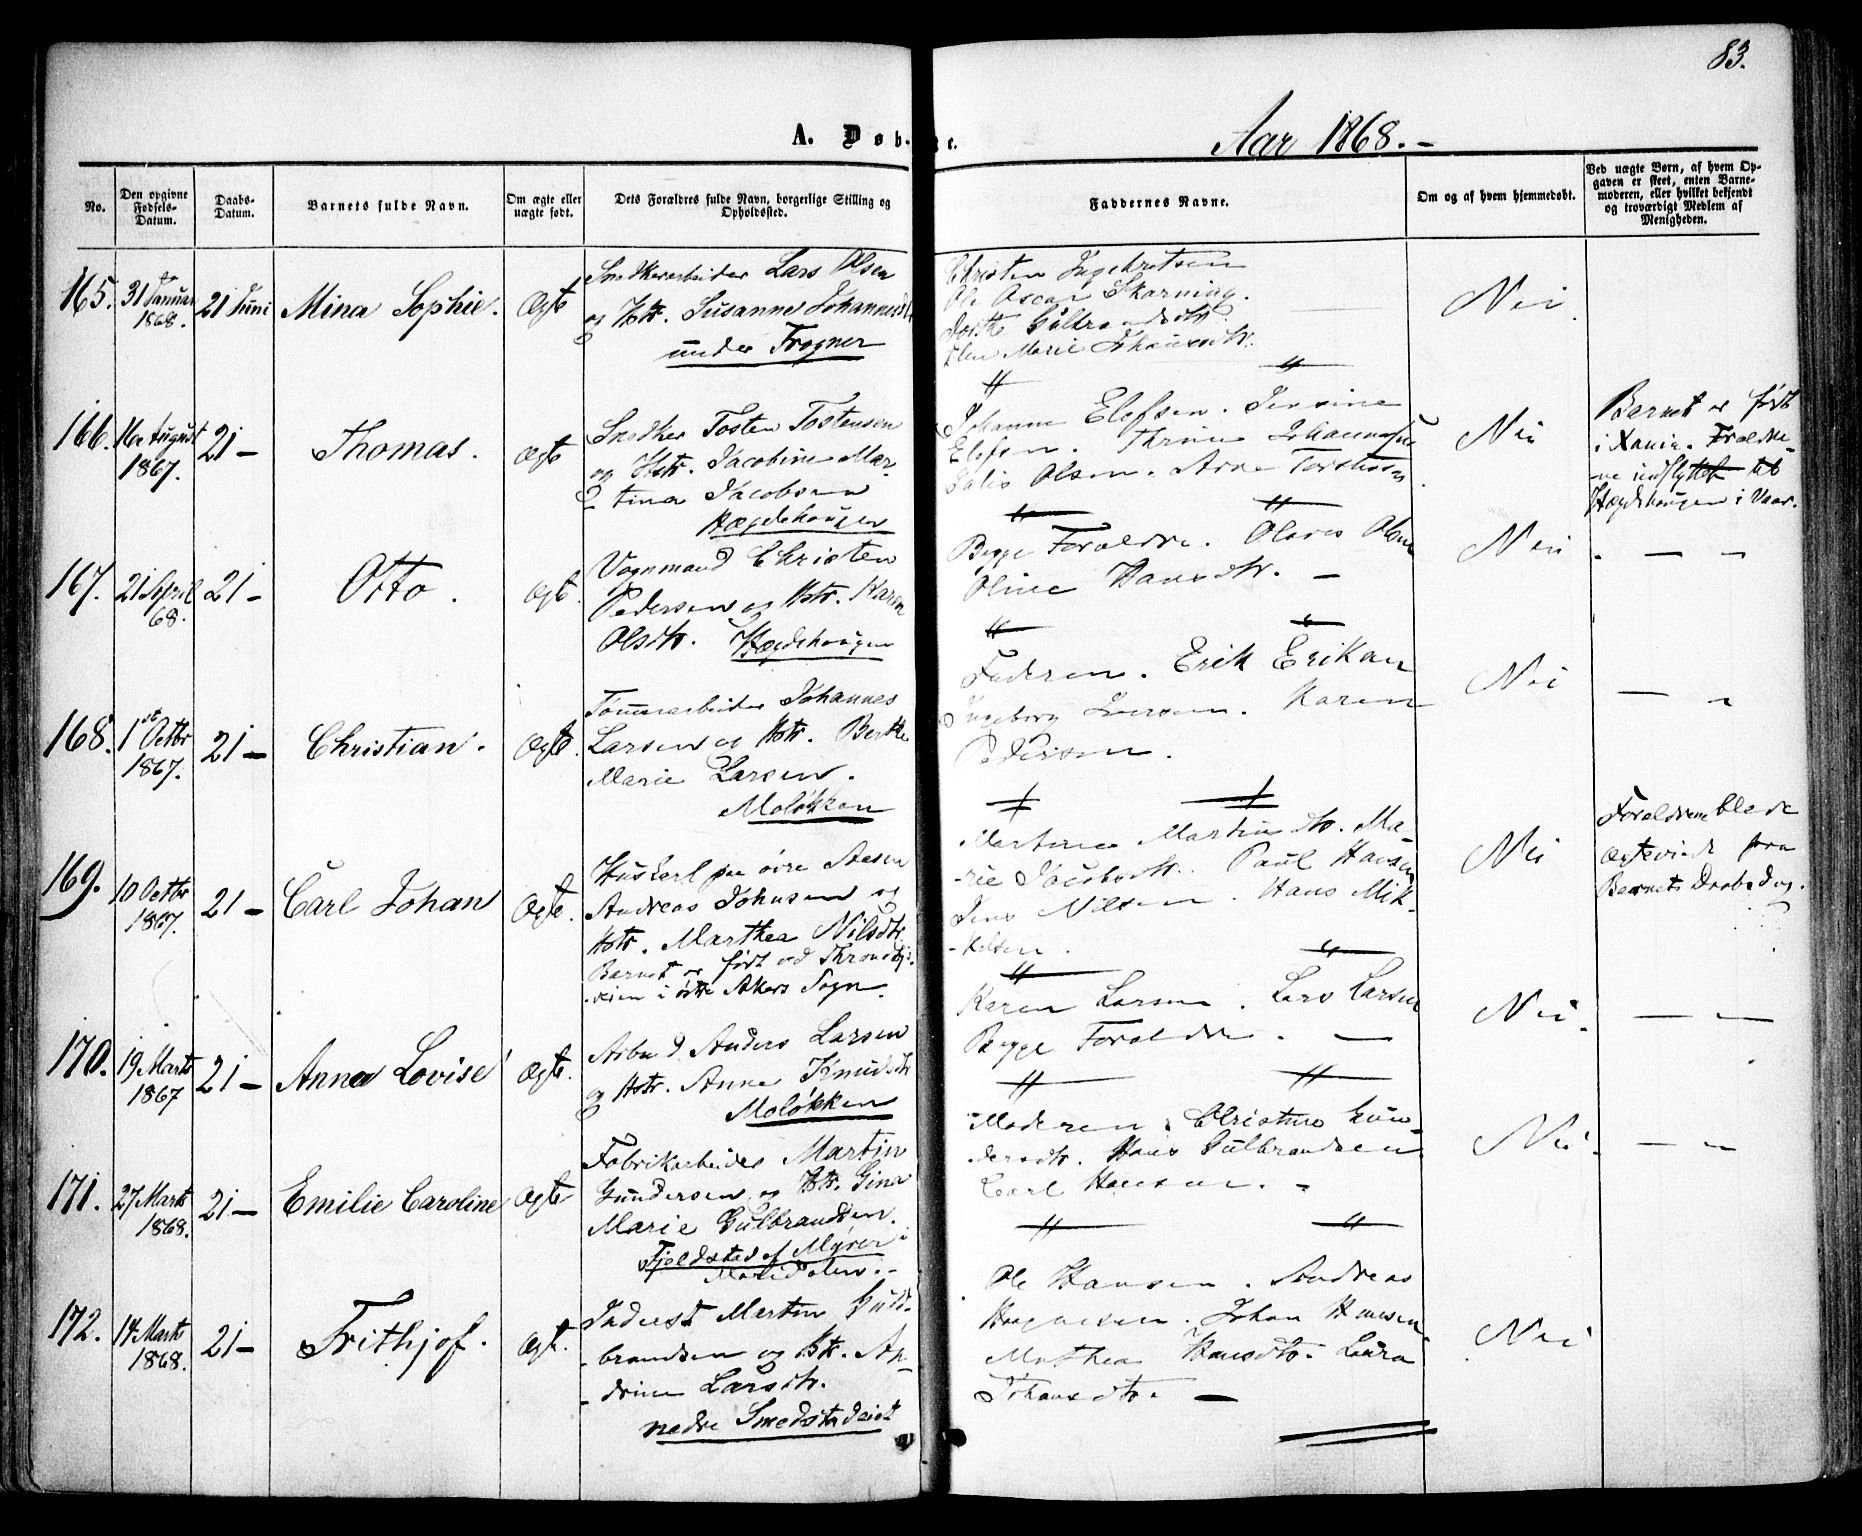 83.
A. Døb-
te.
Aar 1868. -
No.
Den opgivne Fødsels-Datum.
Daabs-Datum.
Barnets fulde Navn.
Om ægte eller uægte født.
Dets Forældres fulde Navn, borgerlige Stilling og Opholdssted.
Faddernes Navne.
Om og af hvem hjemmedøbt.
Ved uægte Børn, af hvem Op-
gaven er skeet, enten Barne-
moderen, eller hvilket bekjendt
og troværdigt Medlem af
Menigheden.
165.
31 Januar
1868.
21 Juni
Mina Sophie.
Ægte
Snedkerarbeider Lars Olsen
og Hstr. Susanne Johannesdtr
under Frogner
Christen Ingebretsen
Ole Oscar Skarning.
Dorthe Gulbrandsdtr.
Elen Marie Johansdtr.
Nei.
166.
16de August
1867.
21 -
Thomas.
Ægte
Snedker Tosten Tostensen
og Hstr. Jacobine Mar-
tina Jacobsen
Hægdehaugen
Johanne Elefsen. Jensine
Elefsen. Thrine Johannesen
Olsen. Arne
Nei
Barnet er født
i Xania. Forældre-
ne indflyttet til
Hægdehaugen i Vaar.
167.
21 April
68.
21 -
Otto.
Ægte.
Vognmand Christen
Pedersen og Hstr. Karen
Olsdtr. Hægdehaugen
Begge Forældre. Olaves Olsen
Oline Hansdtr. -
Nei - — —
168.
1st Octbr
1867.
21 -
Christian.
Ægte.
Tømmerarbeider Johannes
Larsen og Hstr. Berthe
Marie Larsen.
Moløkken
Faderen. Erik Eriksen
Ingeborg Iversen. Karen
Pedersen.
Nei — -
169.
10 Octbr
1867.
21 -
Carl Johan
Ægte.
Huskarl paa øvre Aasen
Andreas Johnsen og
Hstr. Marthea Nilsdtr
Barnet er født ved Thronhjems-
veien i østre Akers Sogn.
Martinea Martinsdtr. Ma-
rie Jacobsdtr. Paul Hansen
Jens Nilsen. Hans Mik-
kelsen.
Nei
Forældrene blede
ægteviede fra
Barnets Daabsdag.
170.
19 Marts
1867
21 -
Anna Lovise
Ægte.
Arbmd Anders Larsen
og Hstr. Anne Knudsdtr
Moløkken
Karen Larsen. Lars Larsen
Begge Forældre. —
Nei. — —
171.
27 Marts
1868.
21 -
Emilie Caroline
Ægte
Fabrikarbeider Martin
Gundersen og Hstr. Gina
Marie Gulbrandsen.
Fjeldstad af Myrer i
Maridalen. -
Moderen. Christine Gun-
dersdtr. Hans Gulbrandsen
Carl Hansen. -
Nei. — —
172.
14 Marts
1868.
21 -
Frithjof.
Ægte.
Inderst Martin Guld-
brandsen og Hstr. An-
drine Larsdtr.
nedre Smedstadeiet
Ole Hansen. Andreas
Haagensen. Johan Hansen
Mathea Hansdtr. Laura
Johansdtr. —
Nei